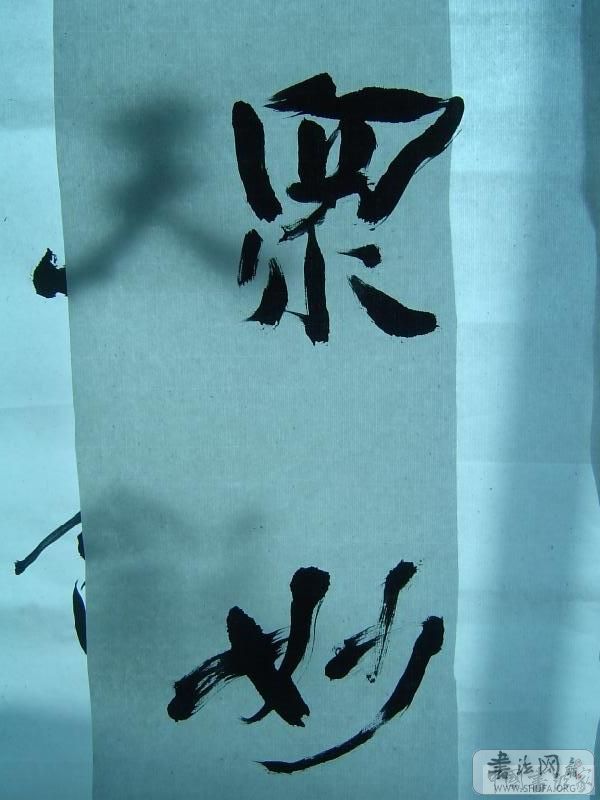 眾妙
書法网
WWW.SHUFA.ORG